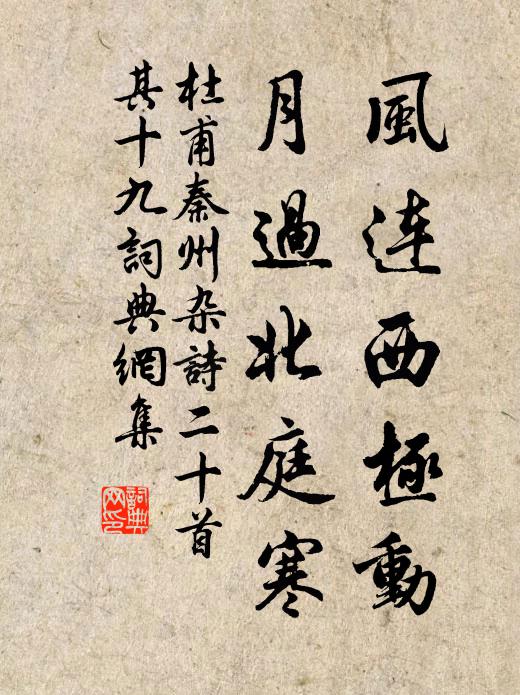 風連西極動
月過北庭寒
杜甫秦州杂詩二十首
其十九詞典網集
詞典
网印